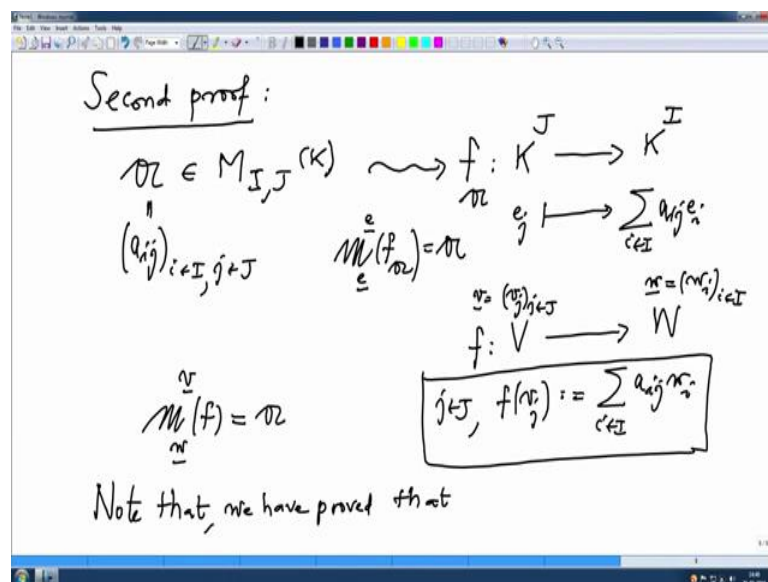 Second proof :
𝔄 ∈ M_{I,J}(K) ⇝ f_𝔄 : K^J ⟶ K^I
‖
(a_{ij})_{i∈I, j∈J}
e_j ⟼ ∑_{i∈I} a_{ij} e_i
𝔐^e_e(f_𝔄) = 𝔄
v = (v_j)_{j∈J} w = (w_i)_{i∈I}
f : V ⟶ W
j∈J, f(v_j) := ∑_{i∈I} a_{ij} w_i
𝔐^v_w(f) = 𝔄
Note that, we have proved that